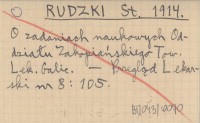 RUDZKI St. 1914.
O zadaniach naukowych Od-
działu Zakopiańskiego Tow.
Lek. Galic. — Przegląd Lekar-
ski nr 8: 105.